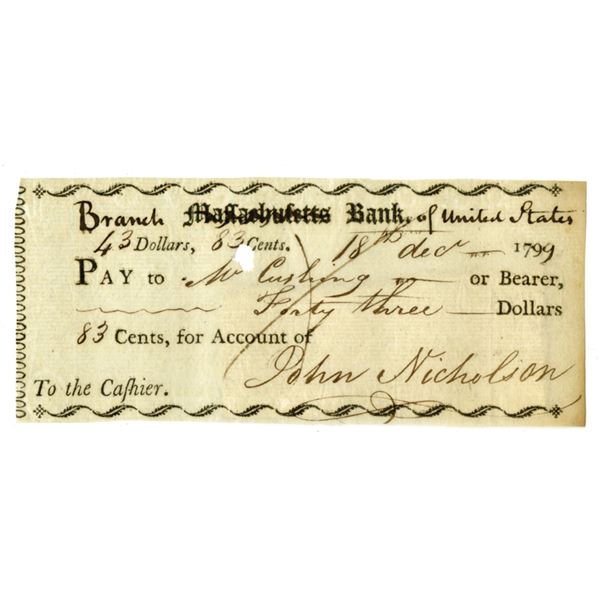 Branch Maſſachuſetts Bank, of United States
43 Dollars, 83 Cents. 18th decr 1799
PAY to Mr Cushing or Bearer,
Forty three Dollars
83 Cents, for Account of
John Nicholson
To the Caſhier.